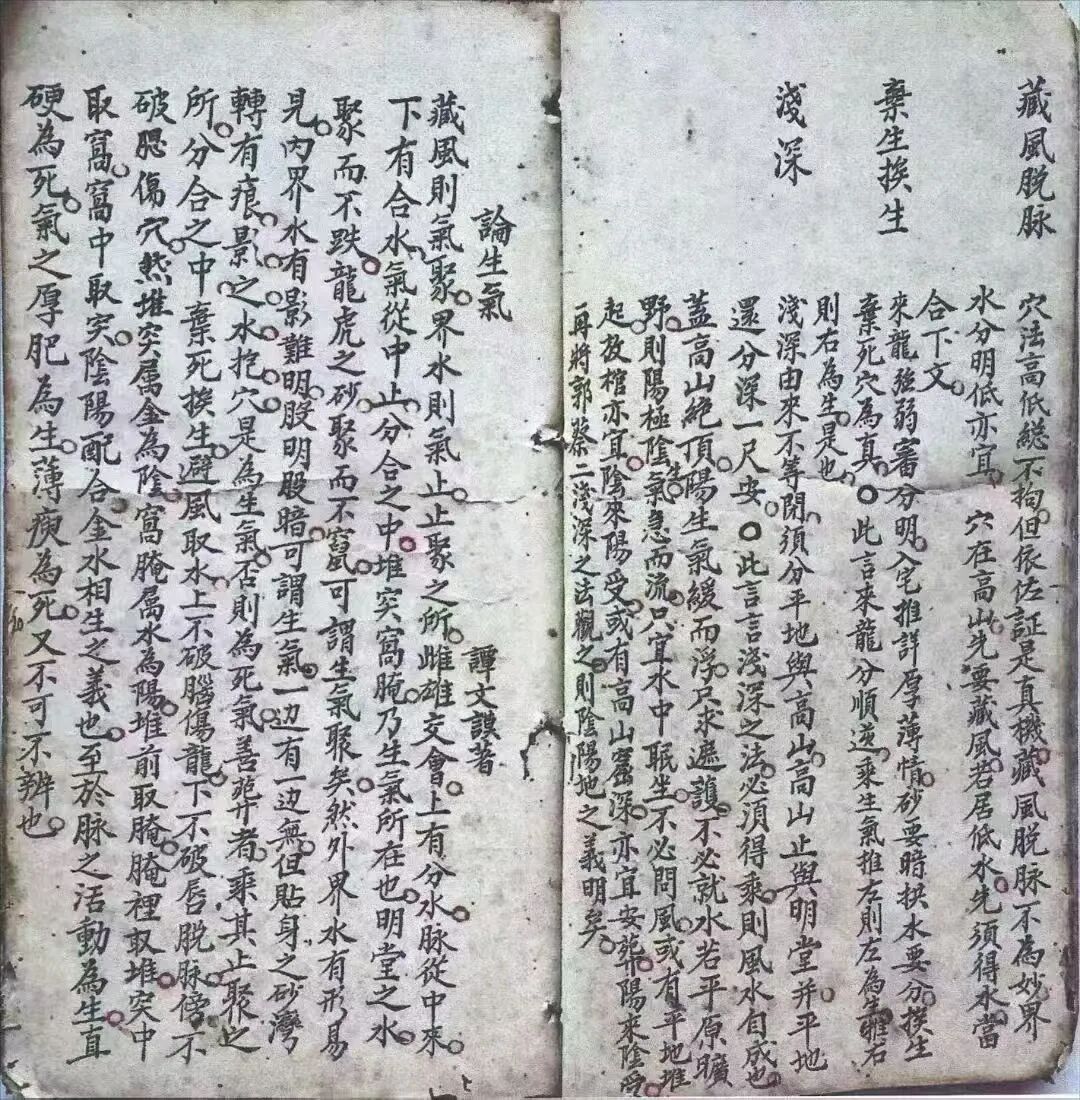 藏風脱脉
穴法高低總不拘但依佐証是真機藏風脱脉不為妙界
水分明低亦宜 穴在高山先要藏風若居低水先須得水當
合下文
棄生挨生
來龍強弱審分明入宅推詳厚薄情砂要暗拱水要分挨生
棄死穴為真○此言來龍分順逆乘生氣推左則左為生雅右
則右為生是也
淺深
淺深由來不等閉須分平地與高山高山止與明堂并平地
還分深一尺安○此言言淺深之法必須得乘則風水自成也
蓋高山絕頂陽生氣緩而浮只求遮護不必就水若平原曠
野則陽極陰氣急而流只宜水中眠坐不必問風或有平地堆
起放棺亦宜陰來陽受或有高山窩深亦宜安葬陽來陰受
再將郭蔡二淺深之法觀之則陰陽地之義明矣
論生氣 譚文謨著
藏風則氣聚界水則氣止止聚之所雌雄交會上有分水脉從中來
下有合水氣從中止分合之中堆突窩腌乃生氣所在也明堂之水
聚而不跌龍虎之砂聚而不竄可謂生氣聚矣然外界水有形易
見內界水有影難明股明股暗可謂生氣一边有一边無但貼身之砂灣
轉有痕影之水抱穴是為生氣否則為死氣善葬者乘其止聚之
所分合之中棄死挨生避風取水上不破腦傷龍下不破唇脱脉傍不
破腮傷穴然堆突属金為陰窩腌属水為陽堆前取腌腌裡取堆突中
取窩窩中取突陰陽配合金水相生之義也至於脉之活動為生直
硬為死氣之厚肥為生薄瘐為死又不可不辨也